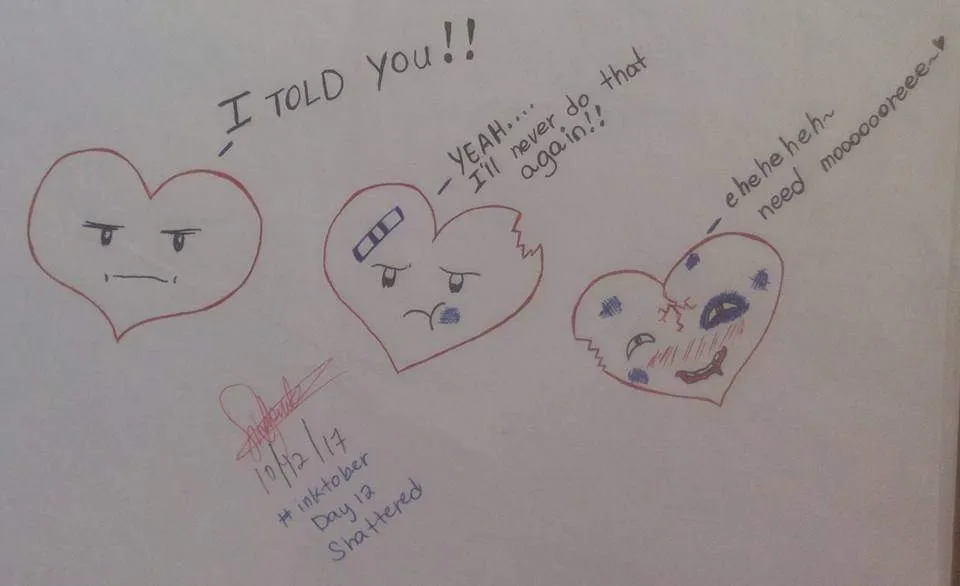 I TOLD YOU!!
YEAH....
I'll never do that
again!!
eheheheh~
need mooooooreee~♥
10/12/17
#inktober
Day 12
Shattered